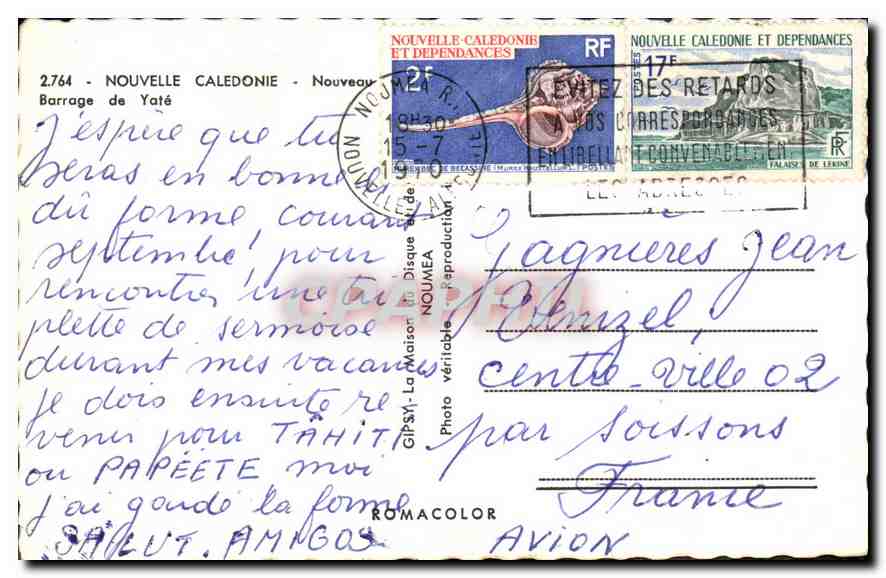 2.764 - NOUVELLE CALEDONIE - Nouveau
Barrage de Yaté
J'espère que tu
seras en bonne
dû forme, courant
septembre, pour
rencontrer une tri
plette de sermoise
durant mes vacances
je dois ensuite re
venir pour TÂHITI
ou PAPEETE moi
j'ai gardé la forme
SALUT. AMIGOS
NOUVELLE-CALEDONIE
ET DEPENDANCES
RF
2F
POSTES
NOUVELLE CALEDONIE ET DEPENDANCES
17F
POSTES
RF
FALAISES DE LEKINE
NOUMEA R.P.
18H30
15-7
1970
EVITEZ DES RETARDS
A VOS CORRESPONDANCES
EN LIBELLANT CONVENABLEMENT
LES ADRESSES
GIPSY - La Maison du Disque et de
NOUMEA
Photo véritable - Reproduction
ROMACOLOR
CPAPHIL
Gagnieres Jean
Venizel,
centre-ville 02
par Soissons
France
AVION